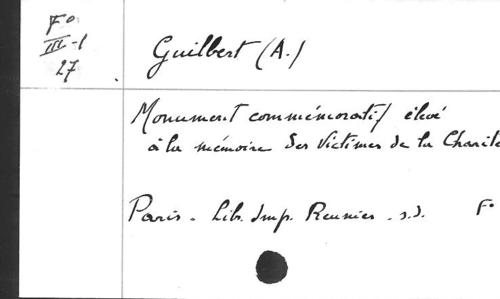 Fº
III-1
27
Guilbert (A.)
Monument commémoratif élevé
à la mémoire des Victimes de la Charité
Paris. Lib. Imp. Réunies. s.d. Fº